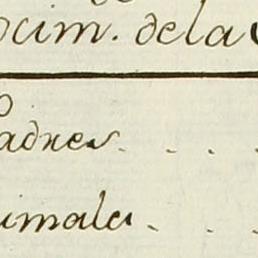 ocim. dela
adres . . . .
imala . . . .